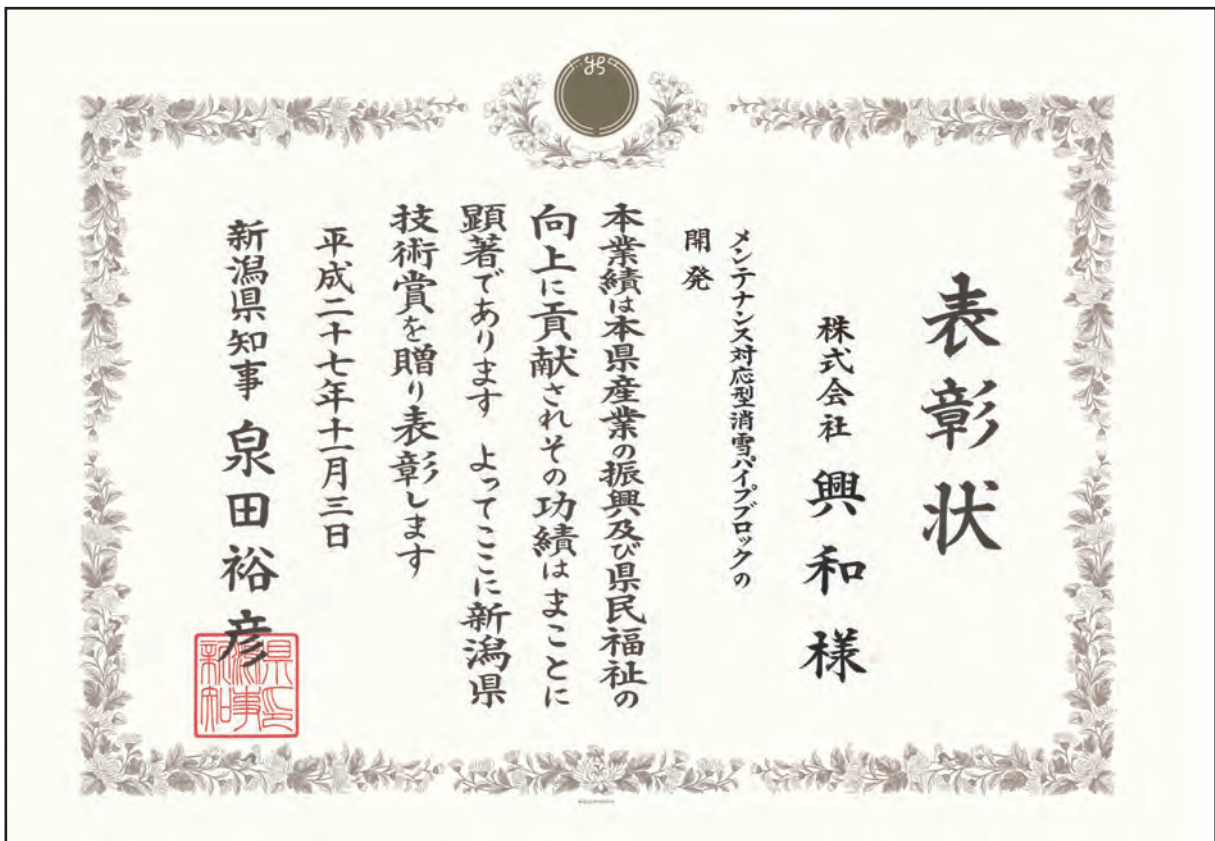 表彰状
株式会社 興和様
メンテナンス対応型消雪パイプブロックの
開発
本業績は本県産業の振興及び県民福祉の
向上に貢献されその功績はまことに
顕著であります よってここに新潟県
技術賞を贈り表彰します
平成二十七年十一月三日
新潟県知事 泉田裕彦
新潟県知事印